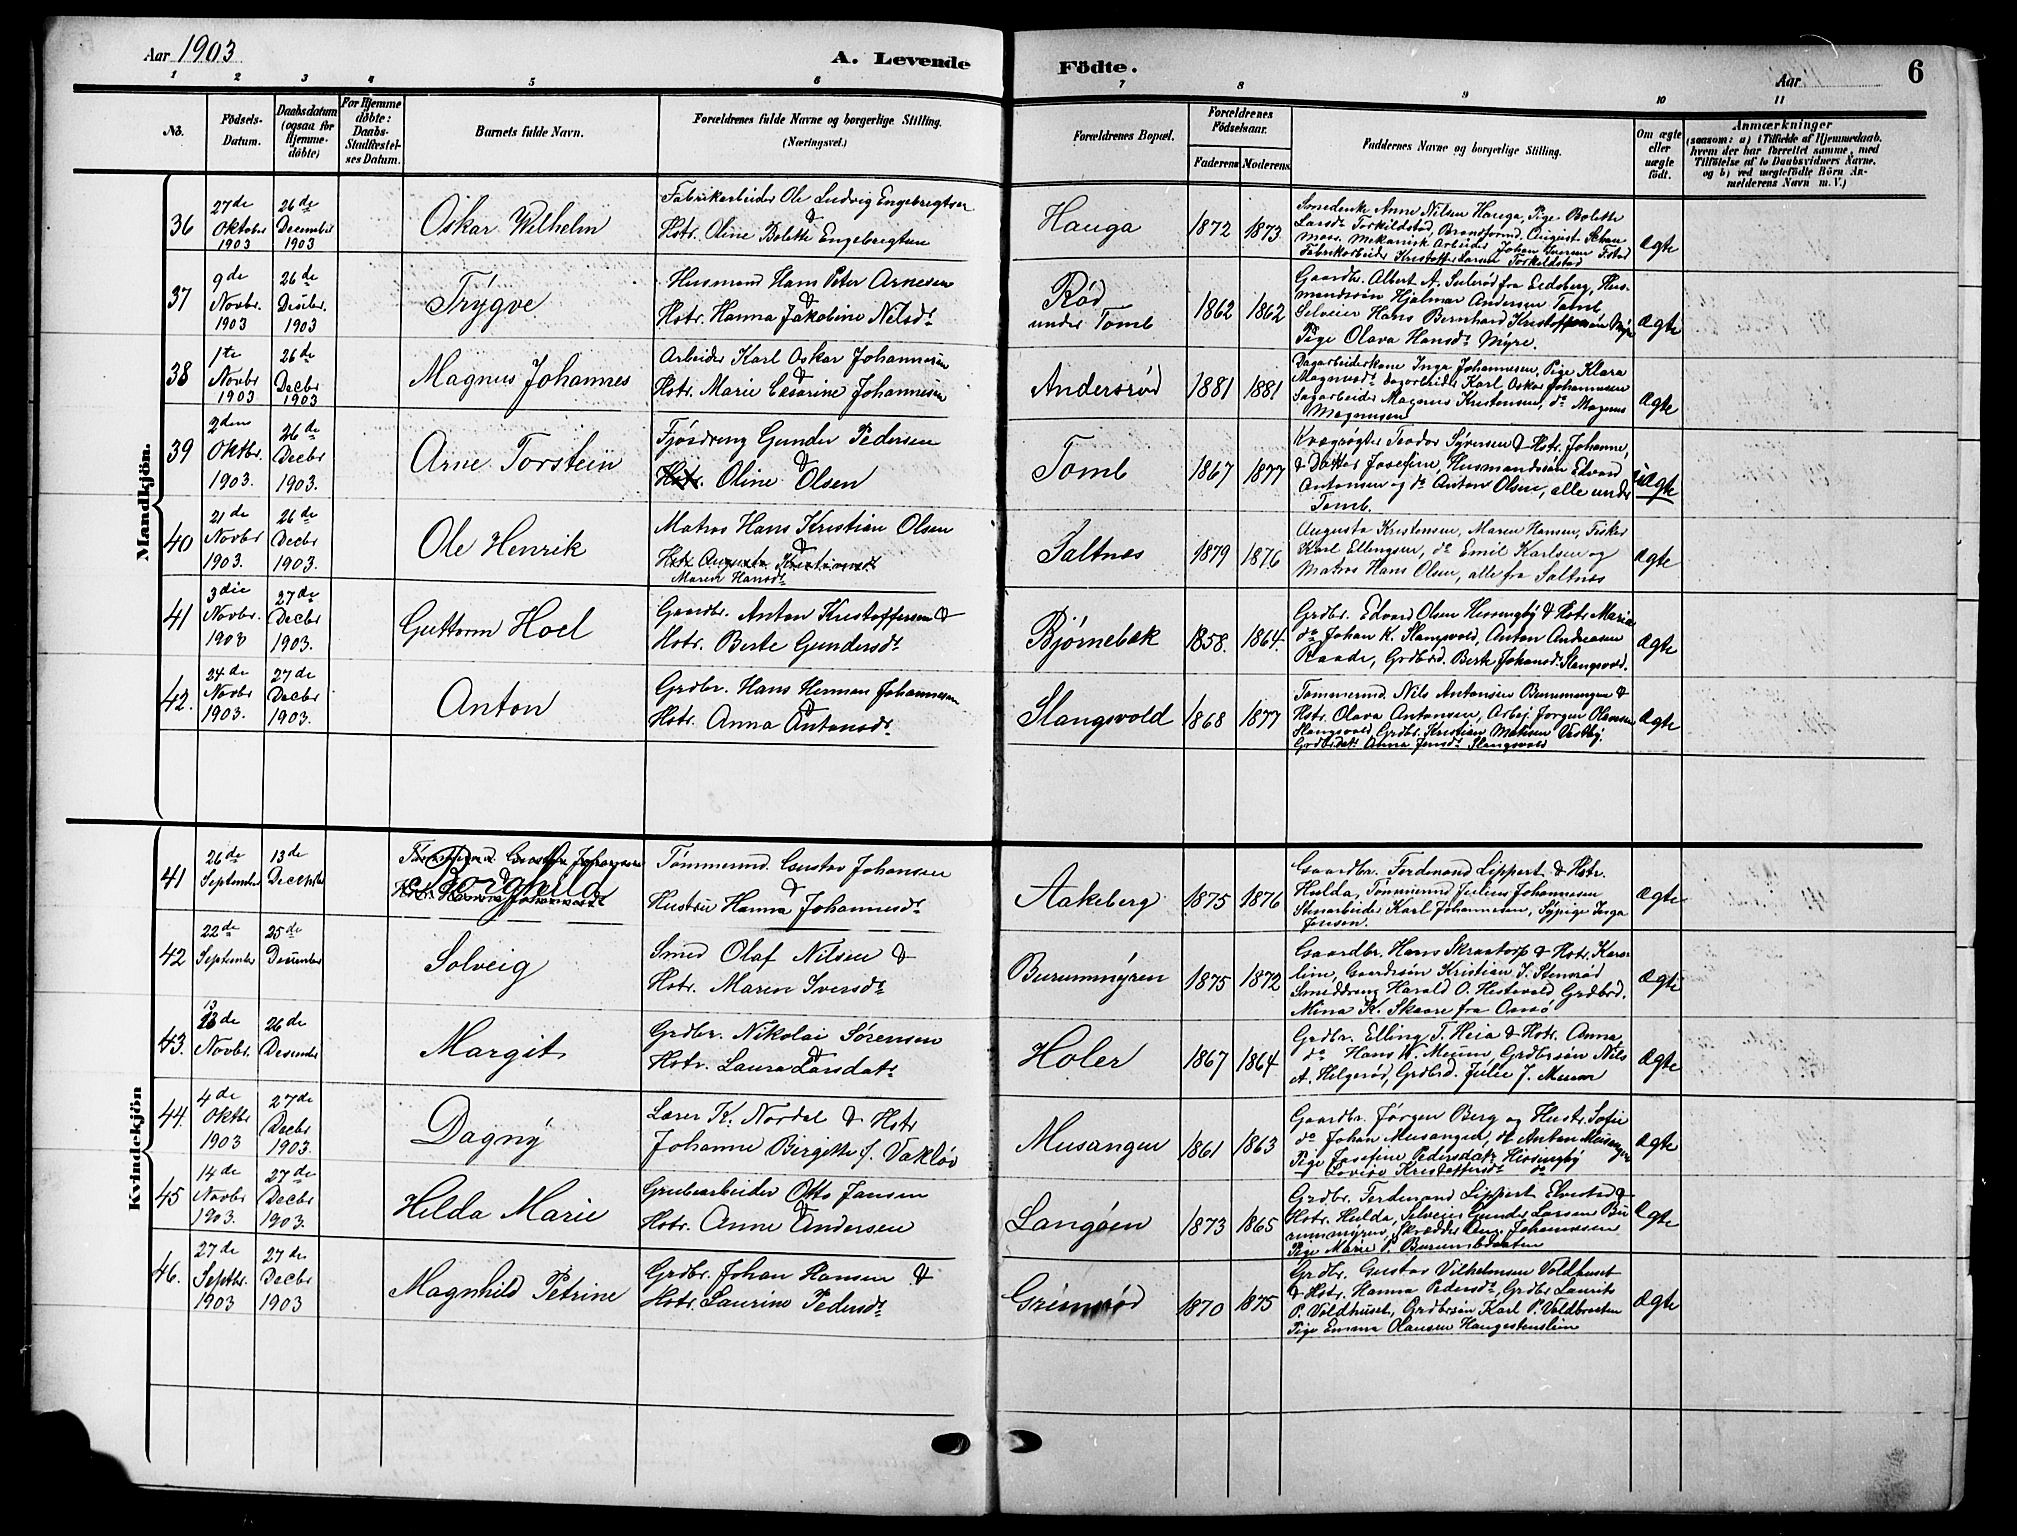 Aar 1903
A. Levende Födte.
Aar 6
1 2 3 4 5 6 7 8 9 10 11
No.
Födsels-Datum.
Daabsdatum (ogsaa for Hjemme-döbte)
For Hjemme döbte: Daabs-Stadfæstelses Datum.
Barnets fulde Navn.
Forældrenes fulde Navne og borgerlige Stilling. (Næringsvei.)
Forældrenes Bopæl.
Forældrenes Födselsaar.
Faderens Moderens
Faddernes Navne og borgerlige Stilling.
Om ægte eller uægte födt.
Anmærkninger
(saasom: a) i Tilfælde af Hjemmedaab, hvem der har forrettet samme, med Tilföielse af to Daabsvidners Navne, og b) ved uægtefödte Börn Anmelderens Navn m. V.)
Mandkjön.
36 27de Oktober 1903 26de December 1903
Oskar Wilhelm
Fabrikarbeider Ole Ludvig Engebregtsen &
Hstr. Oline Bolette Engebregtsen
Hauga 1872 1873
Smedenk. Anne Nilsen Hauga, Pige Bolette
Larsd. Torkildstad, Brandformd. August
Moss, Mekanisk Arbeider Johan Iversen
Fabrikarbeider Kristoffer Larsen Torkildstad
Ægte
37 9de Novbr. 1903 26de Decbr. 1903
Trygve
Husmand Hans Peter Arnesen &
Hstr. Hanna Jakobine Nilsdr
Rød under Tomb 1862 1862
Gaardbr. Albert A. Sulerød fra Eidsberg, Hus-
mandssøn Hjalmar Andersen Tomb,
Selveier Hans Bernhard Kristoffersen Myre
Pige Olava Hansdr Myre.
Ægte
38 1te Novbr 1903 26de Decbr 1903
Magnus Johannes
Arbeider Karl Oskar Johannesen &
Hstr. Marie Cesarine Johannesen
Andersrød 1881 1881
Dagarbeiderkone Inga Johannesen, Pige Klara
Magnusdr dagarbeider Karl Oskar Johannesen
Sagarbeider Magnus Kristensen, do Magnus
Magnussen
Ægte
39 2den Oktbr. 1903. 26de Decbr 1903.
Arne Torstein
Fjøsdreng Gunder Pedersen &
Hstr. Oline Olsen
Tomb 1867 1877
Kvægrøgter Teodor Syversen & Hstr. Johanne,
& Datter Josefine, Husmandssøn Edvard
Antonsen og do Anton Olsen, alle under
Tomb.
uægte
40 21de Novbr 1903. 26de Decbr 1903.
Ole Henrik
Matros Hans Kristian Olsen &
Hstr. Augusta Kristiansdr
Maren Hansdr
Saltnes 1879 1876
Augusta Kristensen, Maren Hansen, Fisker
Karl Ellingsen, do Emil Karlsen og
Matros Hans Olsen, alle fra Saltnes
Ægte
41 3die Novbr. 1903 27de Decbr 1903.
Guttorm Hoel
Gaardbr. Anton Kristoffersen &
Hstr. Berte Gundersdr
Bjørnebæk 1858. 1864.
Grdbr. Edvard Olsen Hissingby & Hstr Marie
do Johan K. Slangsvold, Anton Andreasen
Raade, Grdbrd. Berte Johansdr Slangsvold.
Ægte
42. 24de Novbr 1903. 27de Decbr 1903.
Anton
Grdbr. Hans Herman Johannesen &
Hstr. Anna Antonsdr
Slangsvold 1868 1877
Tømmermd. Nils Antonsen Burumengen &
Hstr. Olava Antonsen, Arbej. Jørgen Olausen
Slangsvold, Grdbr. Kristian Matisen Vestby.
Grdbrdatr Anna Jensdr Slangsvold
Ægte
Kvindekjön
41 26de September 13de Decepber
Borghild
Tømmermd Gustav Johansen
Hstr. Hanna Johannesdr
Tømmermd Gustav Johansen &
Hustru Hanna Johannesdr
Aakeberg 1875 1876
Gaardbr. Ferdinand Lippert & Hstr.
Hulda, Tømmermd Julius Johannesen
Stenarbeider Karl Johannesen, Sypige Inga
Jensen.
Ægte
42 22de September 25de Desember
Solveig
Smed Olaf Nilsen &
Hstr. Maren Iversdr
Burummyren 1875 1872
Gaardbr. Hans Skraatorp & Hstr. Karo-
line, Gaardssøn Kristian J. Stensrød
Smeddreng Harald O. Hestvold Grdbrd.
Mina K. Skaare fra Onsø
Ægte
43. 13de Novbr. 26de Desember
Margit
Grdbr. Nikolai Sørensen &
Hstr. Laura Larsdatr
Holer 1867 1864
Grdbr. Elling T. Heia & Hstr. Anna,
do Hans W. Meum, Grdbrsøn Nils
A. Helgerød, Grdbrd. Julie J. Meum
Ægte
44. 4de Oktbr 1903 27de Decbr 1903.
Dagny
Lærer K. Nordal & Hstr
Johanne Birgitte f. Vakløv
Musangen 1861 1863
Gaardbr. Jørgen Berg og Hustr. Sofie
do Johan Musangen, do Anton Musangen
Pige Josefine Pedersdatr Hissingby
" Lovise Kristoffersdr do
Ægte
45 14de Novbr 1903. 27de Decbr 1903.
Hilda Marie
Grubearbeider Otto Jansen &
Hstr. Anne Andersen
Langøen 1873 1865
Grdbr. Ferdinand Lippert Elvestad &
Hstr. Hulda, Selveier Gunder Larsen Bu
rummyren, Skrædder Aug. Johannesen
Pige Marie P. Burumbraaten
Ægte
46. 27de Septbr. 1903 27de Decbr 1903
Magnhild Petrine
Grdbr. Johan Hansen &
Hstr. Laurine Pedersdr
Grimsrød 1870 1875
Grdbr. Gustav Vilhelmsen Voldhuset
& Hstr. Hanna Pedersdr, Grdbr Laurits
P. Voldhuset, Grdbrsøn Karl P. Voldbraaten
Pige Emma Olausen Haugestenslien
Ægte